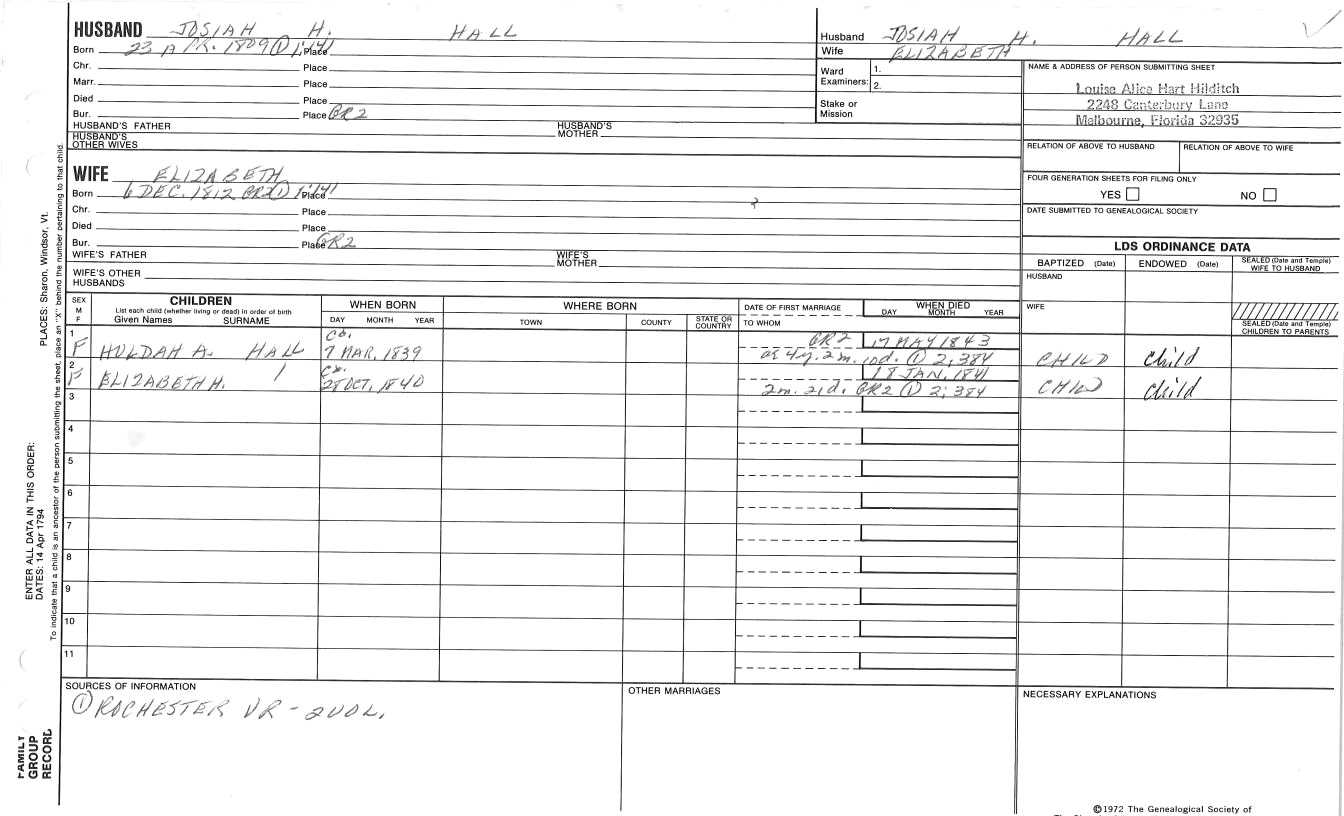 HUSBAND JOSIAH H. HALL
Born 23 APR. 1809 ① 1:141 Place
Chr. Place
Marr. Place
Died Place
Bur. Place GR2
HUSBAND'S FATHER HUSBAND'S MOTHER
HUSBAND'S OTHER WIVES
WIFE ELIZABETH
Born 6 DEC. 1812 GR2 ① 1:141 Place
Chr. Place
Died Place
Bur. Place GR2
WIFE'S FATHER WIFE'S MOTHER
WIFE'S OTHER HUSBANDS
Husband JOSIAH H. HALL
Wife ELIZABETH
Ward Examiners: 1.
2.
Stake or Mission
NAME & ADDRESS OF PERSON SUBMITTING SHEET
Louise Alice Hart Hilditch
2248 Canterbury Lane
Melbourne, Florida 32935
RELATION OF ABOVE TO HUSBAND RELATION OF ABOVE TO WIFE
FOUR GENERATION SHEETS FOR FILING ONLY
YES NO
DATE SUBMITTED TO GENEALOGICAL SOCIETY
LDS ORDINANCE DATA
BAPTIZED (Date) ENDOWED (Date) SEALED (Date and Temple) WIFE TO HUSBAND
HUSBAND
WIFE
SEALED (Date and Temple) CHILDREN TO PARENTS
SEX M F
CHILDREN
List each child (whether living or dead) in order of birth
Given Names SURNAME
WHEN BORN
DAY MONTH YEAR
WHERE BORN
TOWN COUNTY STATE OR COUNTRY
DATE OF FIRST MARRIAGE
TO WHOM
WHEN DIED
DAY MONTH YEAR
1 F HULDAH A. HALL ca. 7 MAR. 1839 GR2 17 MAY 1843
ae 4y. 2m. 10d. ① 2:384 CHILD child
2 F ELIZABETH H. ca. 28 OCT. 1840 18 JAN. 1841
2m. 21d. GR2 ① 2:384 CHILD child
3
4
5
6
7
8
9
10
11
SOURCES OF INFORMATION
① ROCHESTER VR - 2 VOL.
OTHER MARRIAGES
NECESSARY EXPLANATIONS
©1972 The Genealogical Society of
PLACES: Sharon, Windsor, Vt.
ENTER ALL DATA IN THIS ORDER:
DATES: 14 Apr 1794
To indicate that a child is an ancestor of the person submitting the sheet, place an "X" behind the number pertaining to that child.
FAMILY
GROUP
RECORD